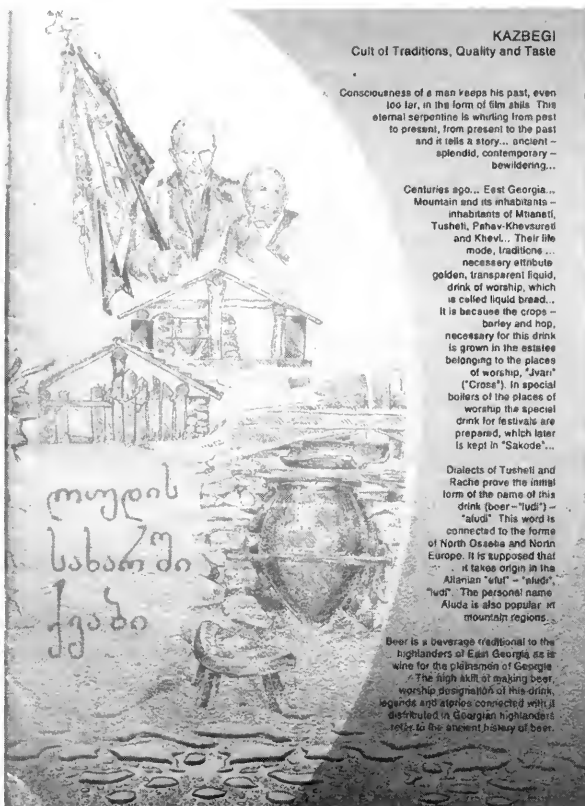 KAZBEGI
Cult of Traditions, Quality and Taste
Consciousness of a man keeps his past, even
too far, in the form of film stills. This
eternal serpentine is whirling from past
to present, from present to the past
and it tells a story... ancient –
splendid, contemporary –
bewildering...
Centuries ago... East Georgia...
Mountain and its inhabitants –
inhabitants of Mtianeti,
Tusheti, Pshav-Khevsureti
and Khevi... Their life
mode, traditions ...
necessary attribute
golden, transparent liquid,
drink of worship, which
is called liquid bread...
It is because the crops –
barley and hop,
necessary for this drink
is grown in the estates
belonging to the places
of worship, "Jvari"
("Cross"). In special
boilers of the places of
worship the special
drink for festivals are
prepared, which later
is kept in "Sakode"...
Dialects of Tusheti and
Racha prove the initial
form of the name of this
drink (beer – "ludi") –
"aludi" This word is
connected to the forms
of North Ossetia and North
Europe. It is supposed that
it takes origin in the
Allanian "elut" – "aludi",
"ludi". The personal name
Aluda is also popular in
mountain regions...
Beer is a beverage traditional to the
highlanders of East Georgia as is
wine for the plainsmen of Georgia
The high skill of making beer,
worship designation of this drink,
legends and stories connected with it
distributed in Georgian highlanders
refer to the ancient history of beer.
ლუდის
სახარში
ქვაბი